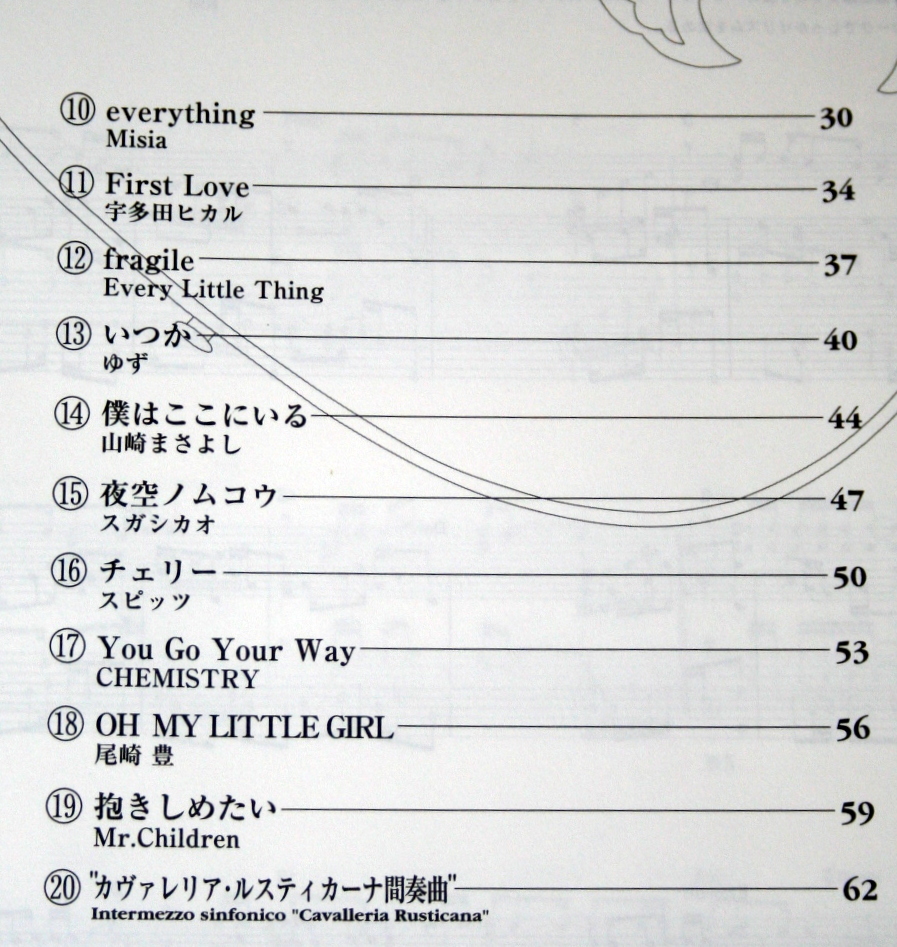 ⑩ everything 30
Misia
⑪ First Love 34
宇多田ヒカル
⑫ fragile 37
Every Little Thing
⑬ いつか 40
ゆず
⑭ 僕はここにいる 44
山崎まさよし
⑮ 夜空ノムコウ 47
スガシカオ
⑯ チェリー 50
スピッツ
⑰ You Go Your Way 53
CHEMISTRY
⑱ OH MY LITTLE GIRL 56
尾崎 豊
⑲ 抱きしめたい 59
Mr.Children
⑳ "カヴァレリア・ルスティカーナ間奏曲" 62
Intermezzo sinfonico "Cavalleria Rusticana"